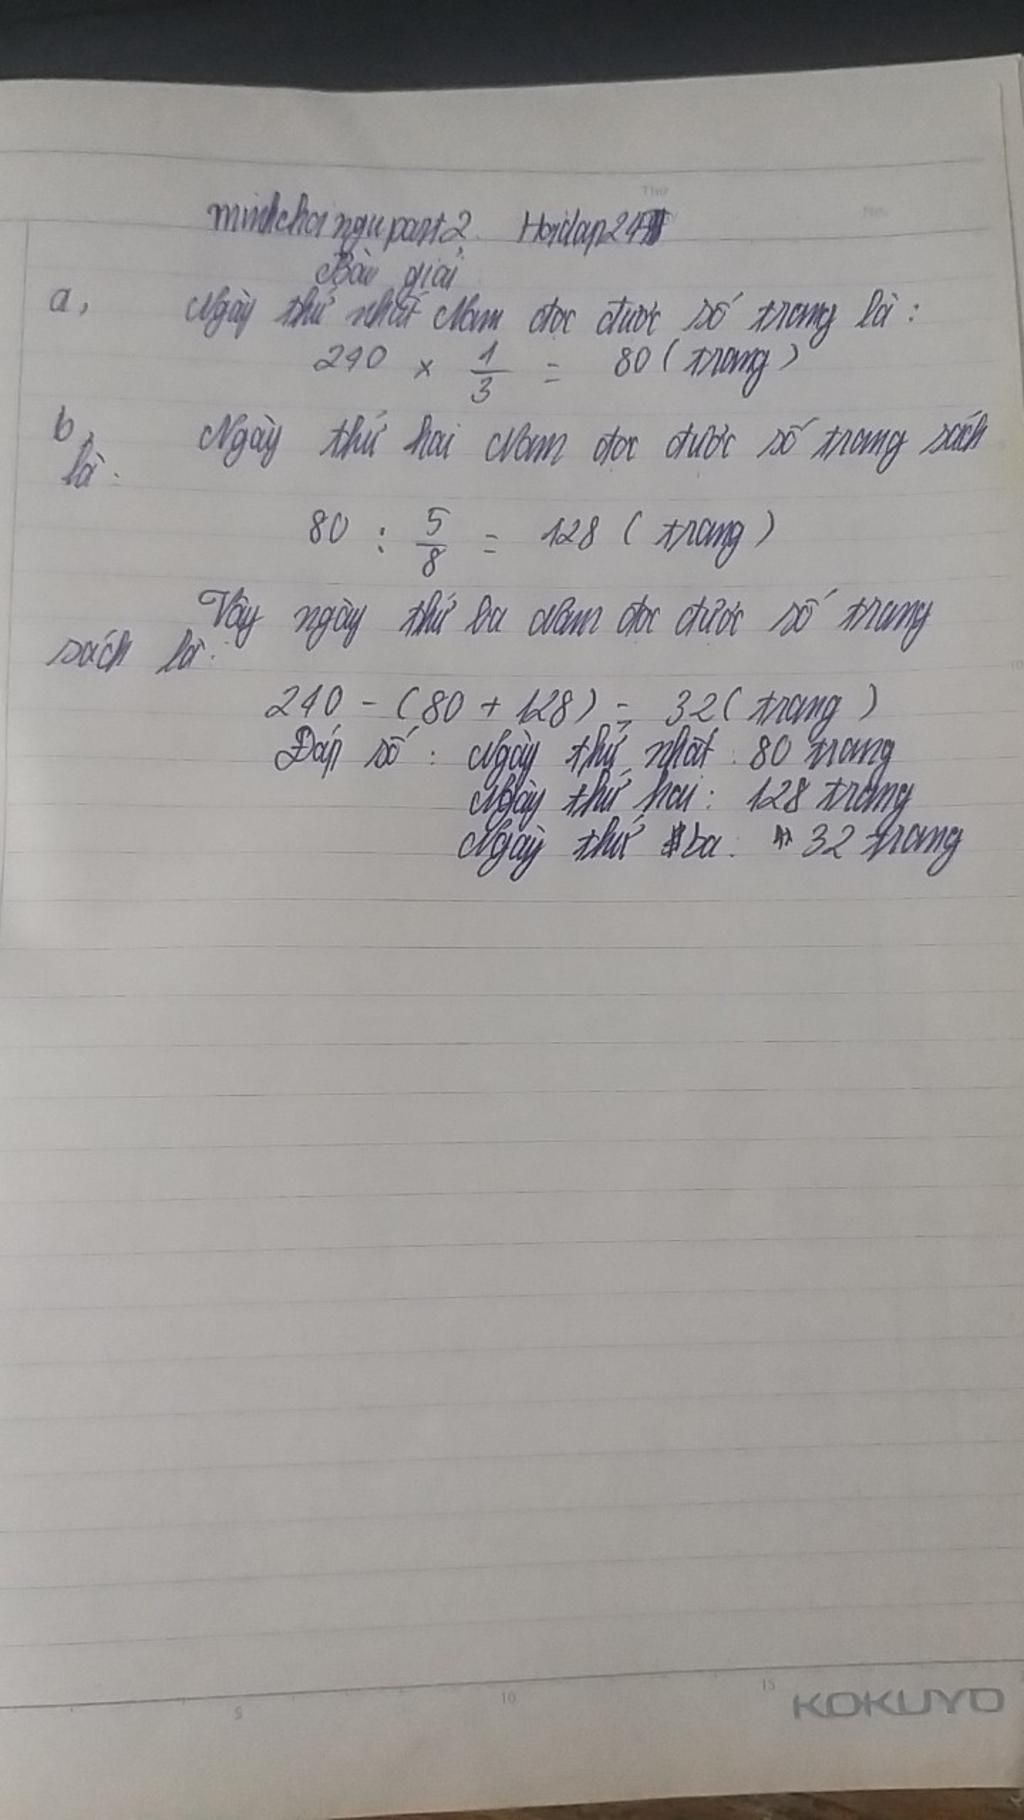 minhchoingupart2. Hoidap247
Bài giải
a, Ngày thứ nhất Nam đọc được số trang là:
240 × 1/3 = 80 (trang)
b, Ngày thứ hai Nam đọc được số trang sách
là:
80 : 5/8 = 128 (trang)
Vậy ngày thứ ba Nam đọc được số trang
sách là:
240 - (80 + 128) = 32 (trang)
Đáp số: Ngày thứ nhất: 80 trang
Ngày thứ hai: 128 trang
Ngày thứ ba: 32 trang
5 10 15
KOKUYO